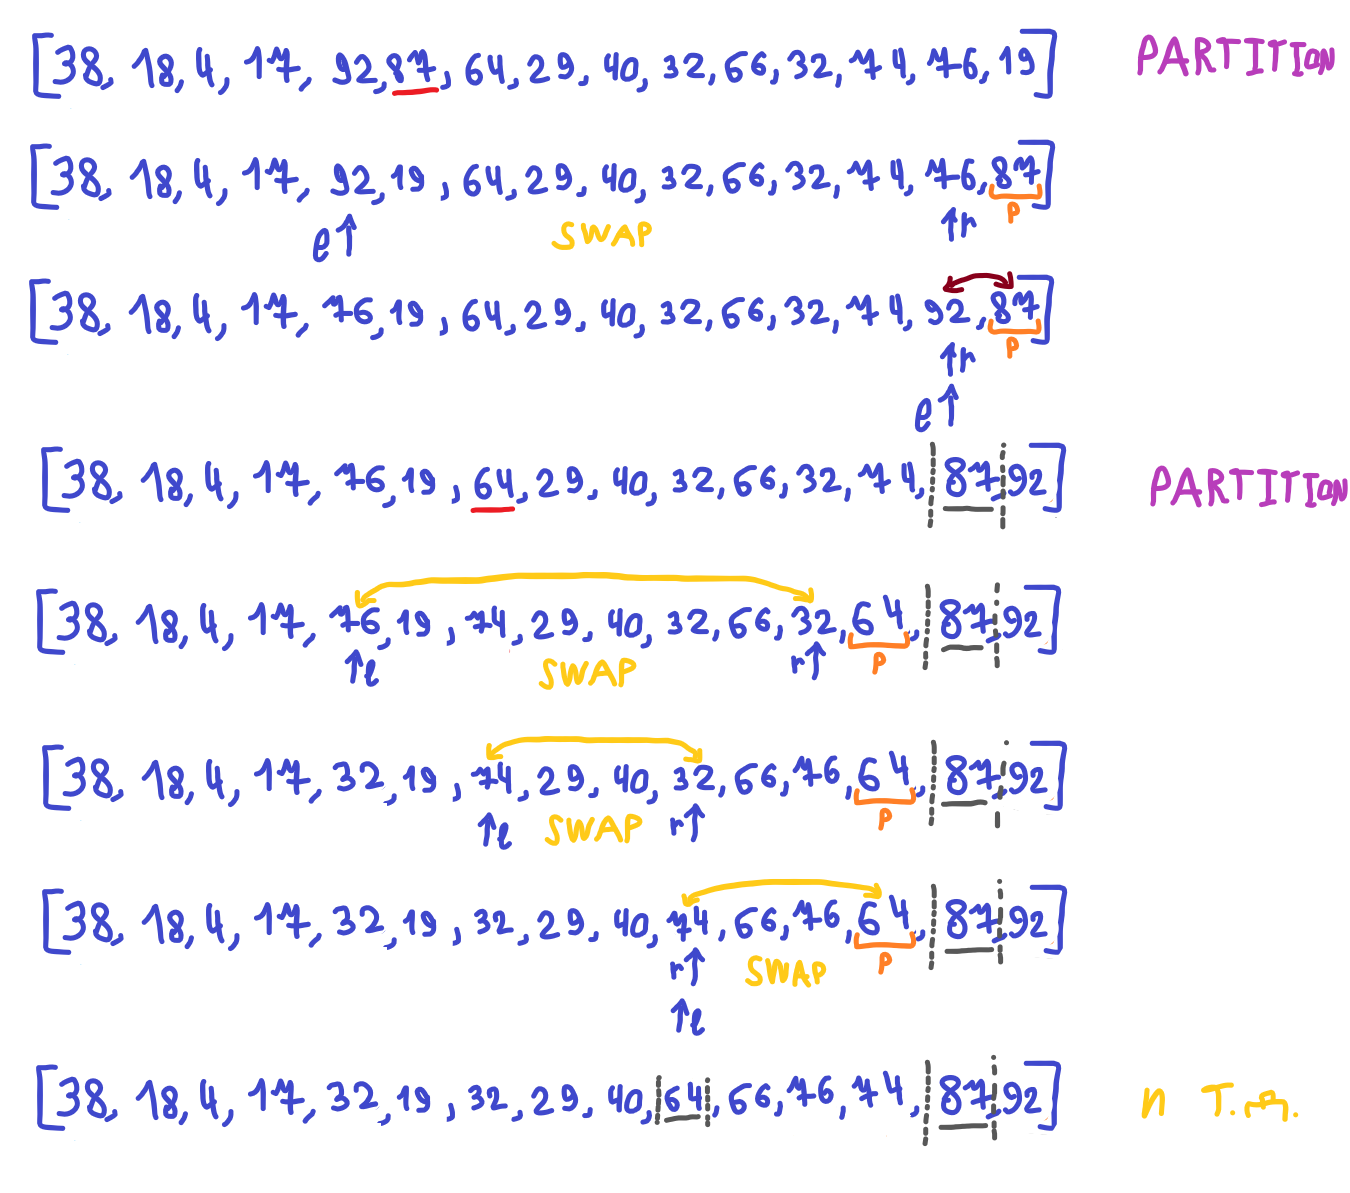 [38, 18, 4, 17, 92, 87, 64, 29, 40, 32, 66, 32, 74, 76, 19] PARTITION
[38, 18, 4, 17, 92, 19, 64, 29, 40, 32, 66, 32, 74, 76, 87]
l SWAP r P
[38, 18, 4, 17, 76, 19, 64, 29, 40, 32, 66, 32, 74, 92, 87]
r P
l
[38, 18, 4, 17, 76, 19, 64, 29, 40, 32, 66, 32, 74, 87, 92] PARTITION
[38, 18, 4, 17, 76, 19, 74, 29, 40, 32, 66, 32, 64, 87, 92]
l SWAP r P
[38, 18, 4, 17, 32, 19, 74, 29, 40, 32, 66, 76, 64, 87, 92]
l SWAP r P
[38, 18, 4, 17, 32, 19, 32, 29, 40, 74, 66, 76, 64, 87, 92]
r SWAP P
l
[38, 18, 4, 17, 32, 19, 32, 29, 40, 64, 66, 76, 74, 87, 92] n